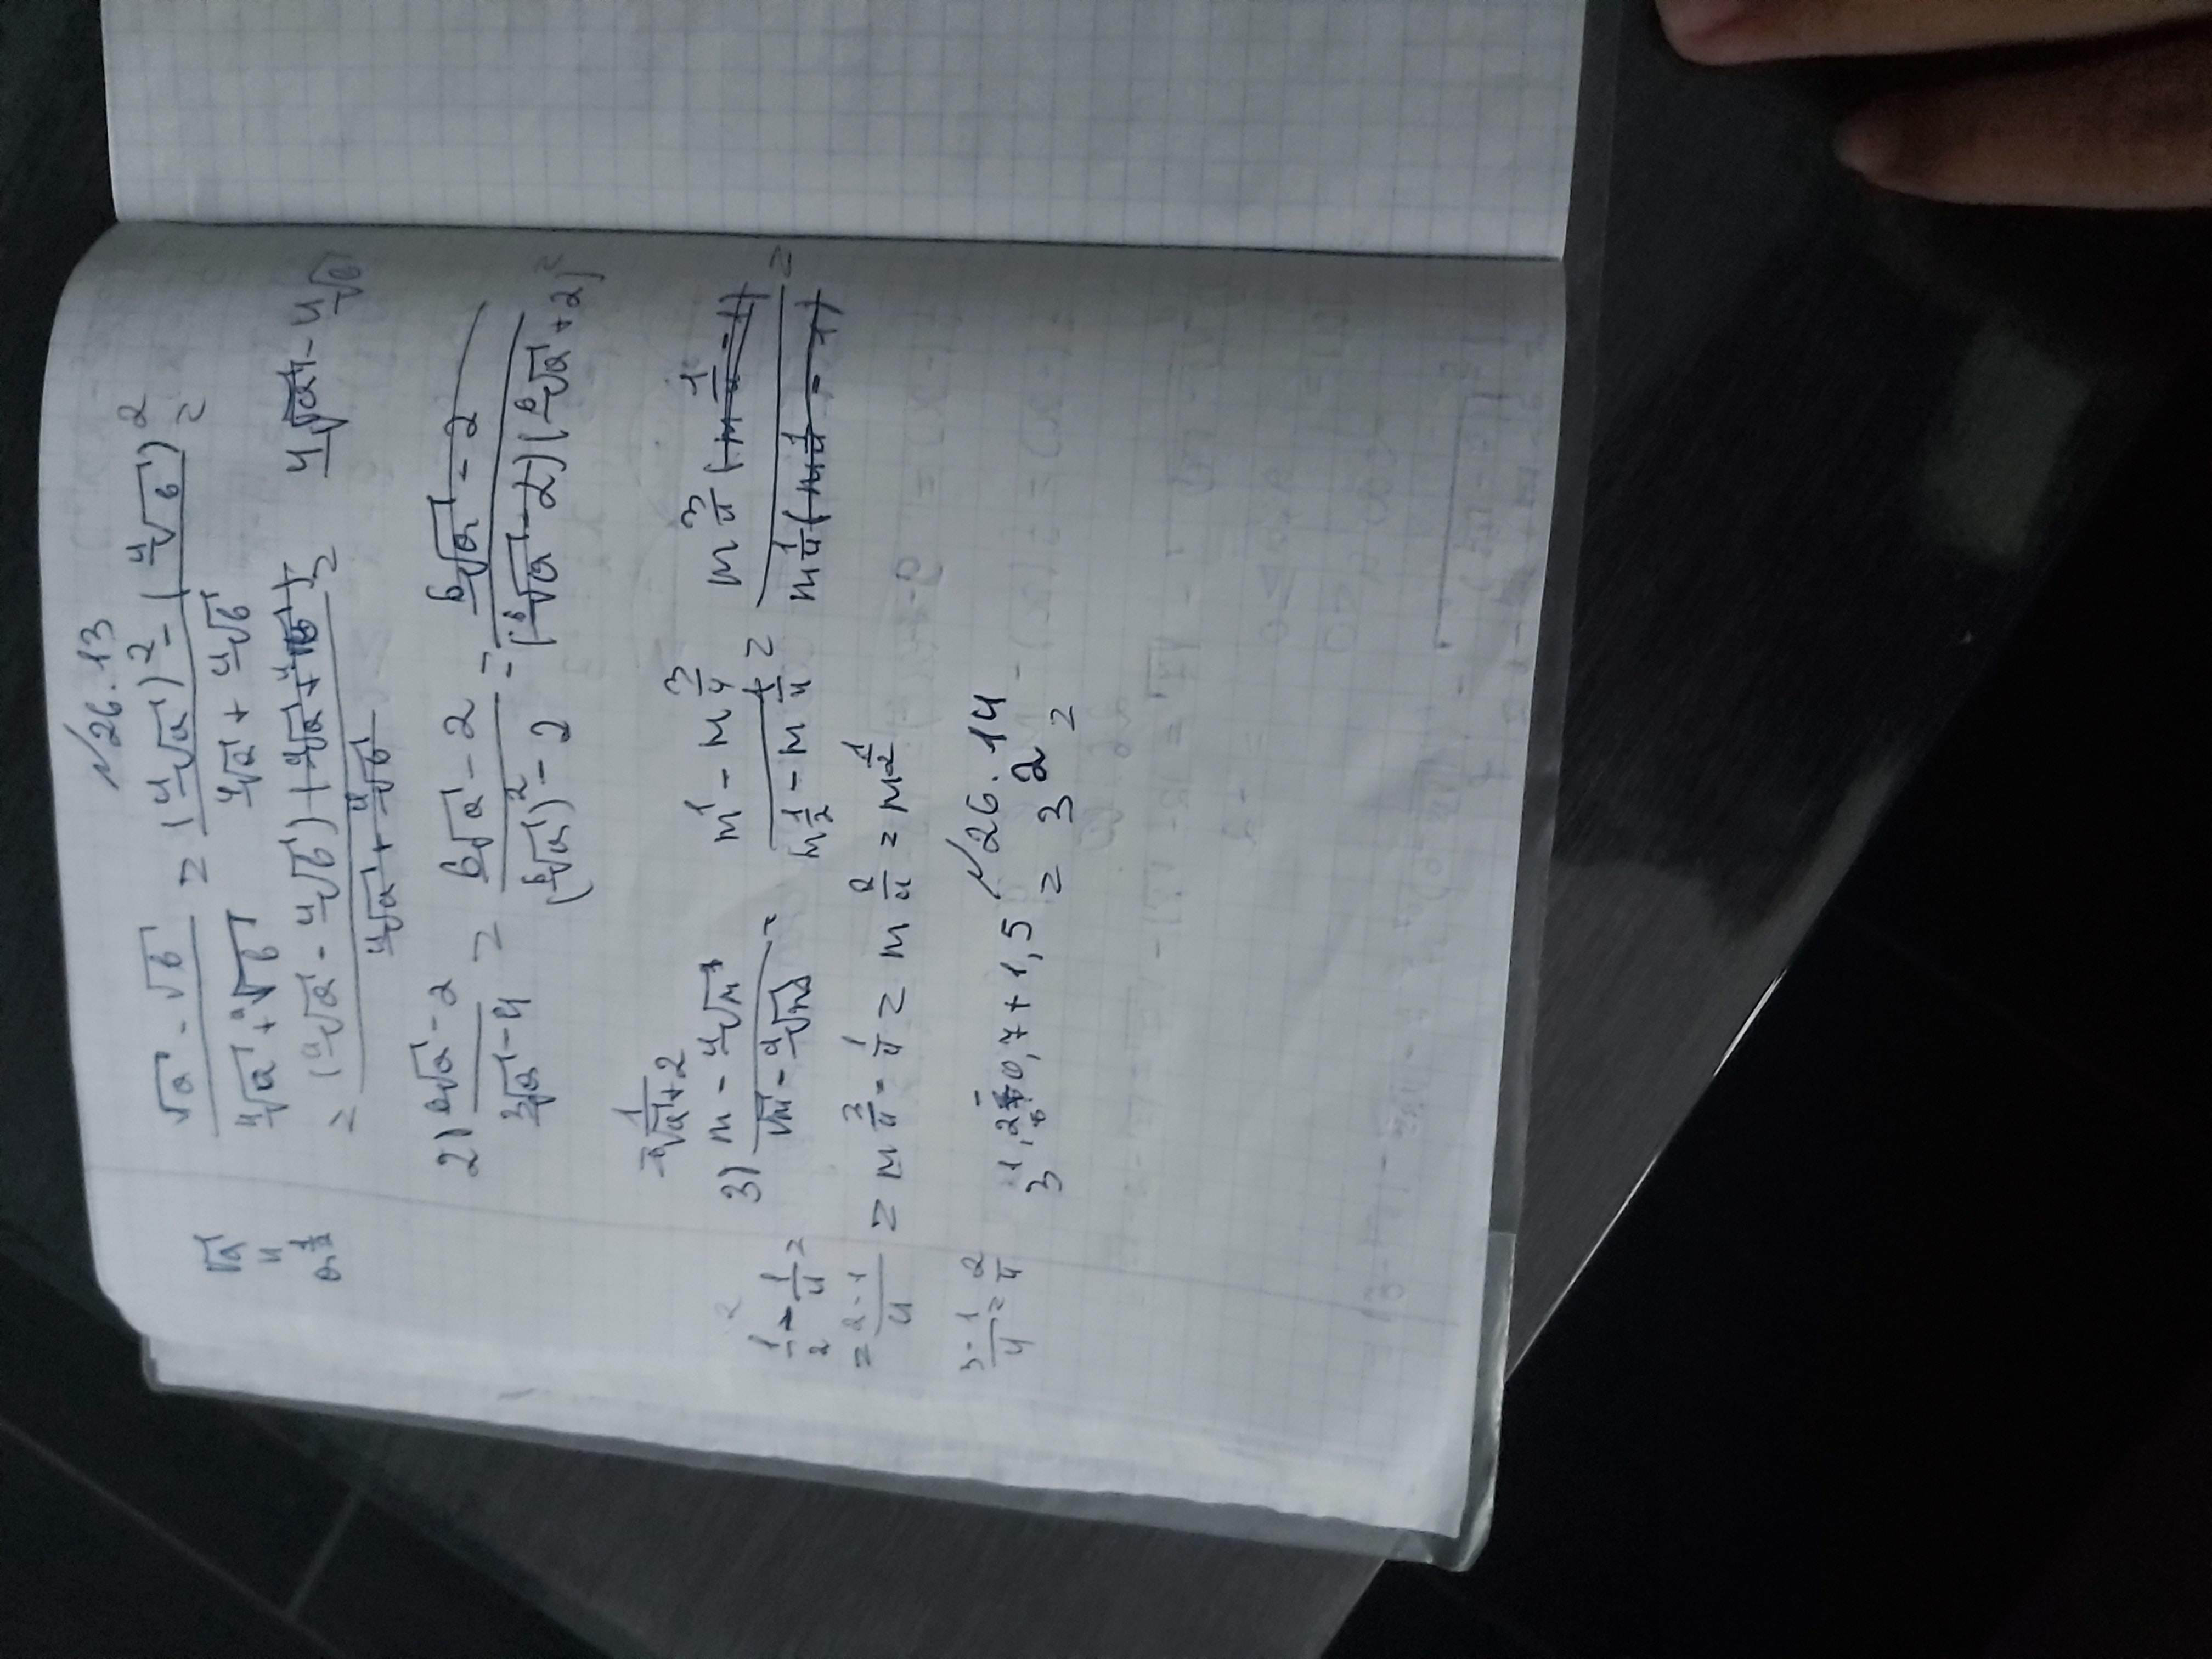 №26.13
√a - √b / ⁴√a + ⁴√b = (⁴√a)² - (⁴√b)² / ⁴√a + ⁴√b =
= (⁴√a - ⁴√b)(⁴√a + ⁴√b) / ⁴√a + ⁴√b = ⁴√a - ⁴√b
√a
"
a^1/2
2) ⁶√a - 2 / ³√a - 4 = ⁶√a - 2 / (⁶√a)² - 2 = ⁶√a - 2 / (⁶√a - 2)(⁶√a + 2) =
1 / ⁶√a + 2
3) m - ⁴√m³ / √m - ⁴√m = m^1 - m^3/4 / m^1/2 - m^1/4 = m^3/4 (m^1/4 - 1) / m^1/4 (m^1/4 - 1) =
= m^3/4 - 1/4 = m^2/4 = m^1/2
1/2 - 1/4 =
= 2 - 1 / 4
3 - 1 / 4 = 2/4
№26.14
3^1,2 - 0,7 + 1,5 = 3^2 =